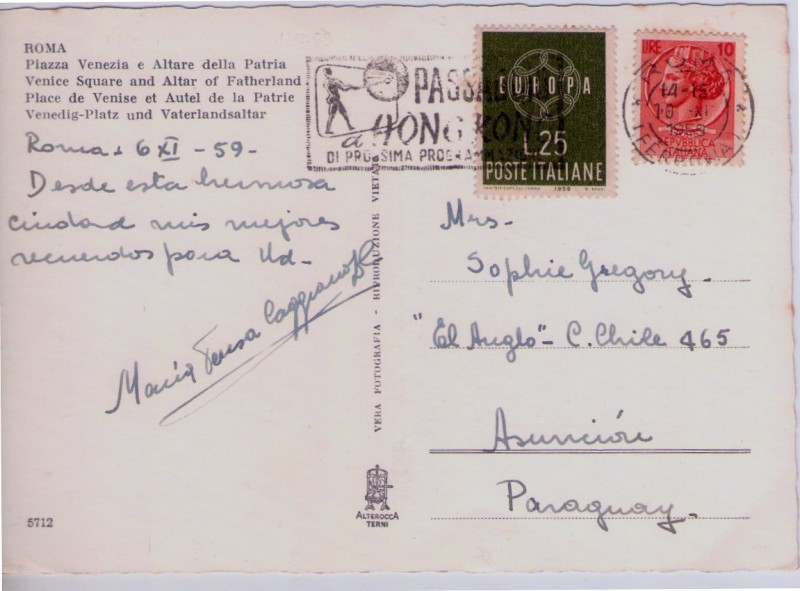 ROMA
Piazza Venezia e Altare della Patria
Venice Square and Altar of Fatherland
Place de Venise et Autel de la Patrie
Venedig-Platz und Vaterlandsaltar
Roma 6 XI - 59 -
Desde esta hermosa
ciudad mis mejores
recuerdos para Ud-
María Teresa Caggiano
5712
VERA FOTOGRAFIA - RIPRODUZIONE VIETATA
ALTEROCCA
TERNI
a HONG KONG
DI PROSSIMA PROGRAMMAZIONE
EUROPA
L.25
POSTE ITALIANE
1959
LIRE 10
REPVBBLICA
ITALIANA
ROMA
14-15
10 XI
(FERROVIA)
Mrs-
Sophie Gregory.
"El Anglo" - C. Chile 465
Asunción
Paraguay.